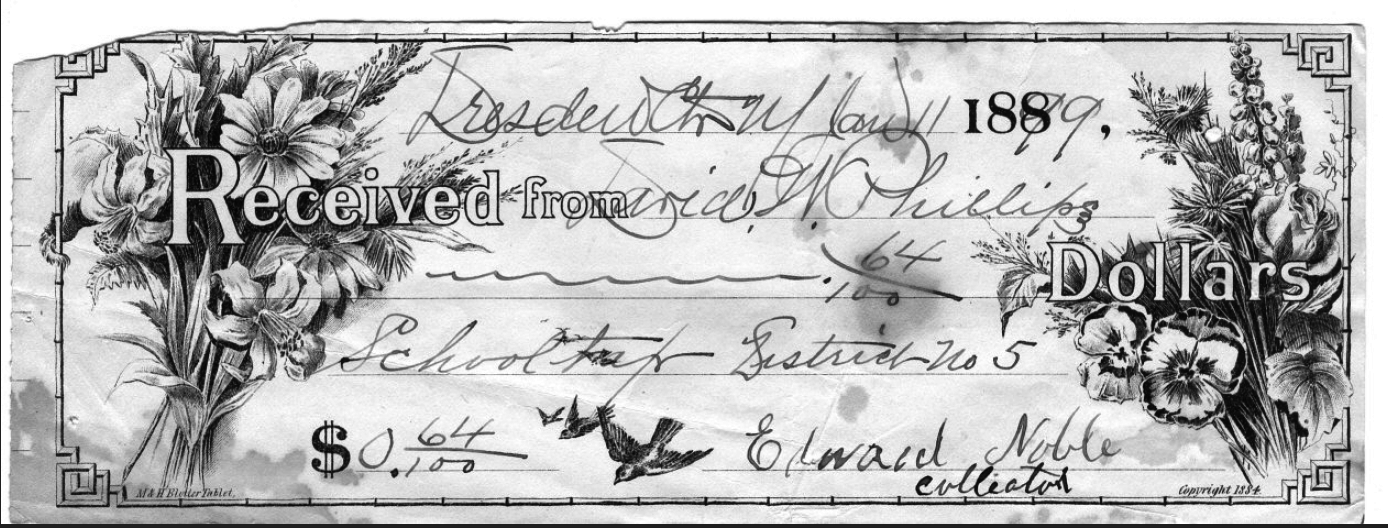 Dresden Ctr NY Jan 11 1889,
Received from David W Phillips
64/100 Dollars
School tax District No 5
$0.64/100 Edward Noble
collector
M & H Blotter Tablet. Copyright 1884.